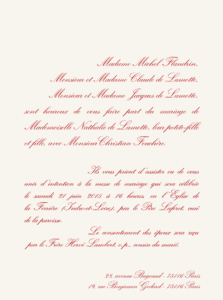 Madame Michel Flandrin,
Monsieur et Madame Claude de Lamotte,
Monsieur et Madame Jacques de Lamotte,
sont heureux de vous faire part du mariage de
Mademoiselle Nathalie de Lamotte, leur petite-fille
et fille, avec Monsieur Christian Fouchère.
Ils vous prient d'assister ou de vous
unir d'intention à la messe de mariage qui sera célébrée
le samedi 21 juin 2015 à 16 heures en l'Eglise de
la Ferrière (Indre-et-Loire), par le Père Lefort, curé
de la paroisse.
Le consentement des époux sera reçu
par le Frère Hervé Lambert, o.p., cousin du marié.
28 avenue Bugeaud - 75016 Paris
18, rue Benjamin Godard - 75016 Paris